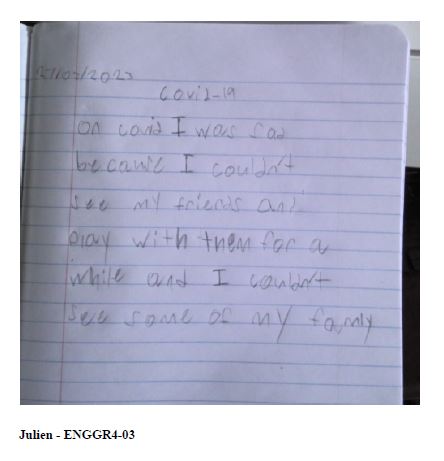 /2023
Covid-19
on covid I was sad
because I couldn't
see my friends and
play with them for a
while and I couldn't
see some of my family
Julien - ENGGR4-03